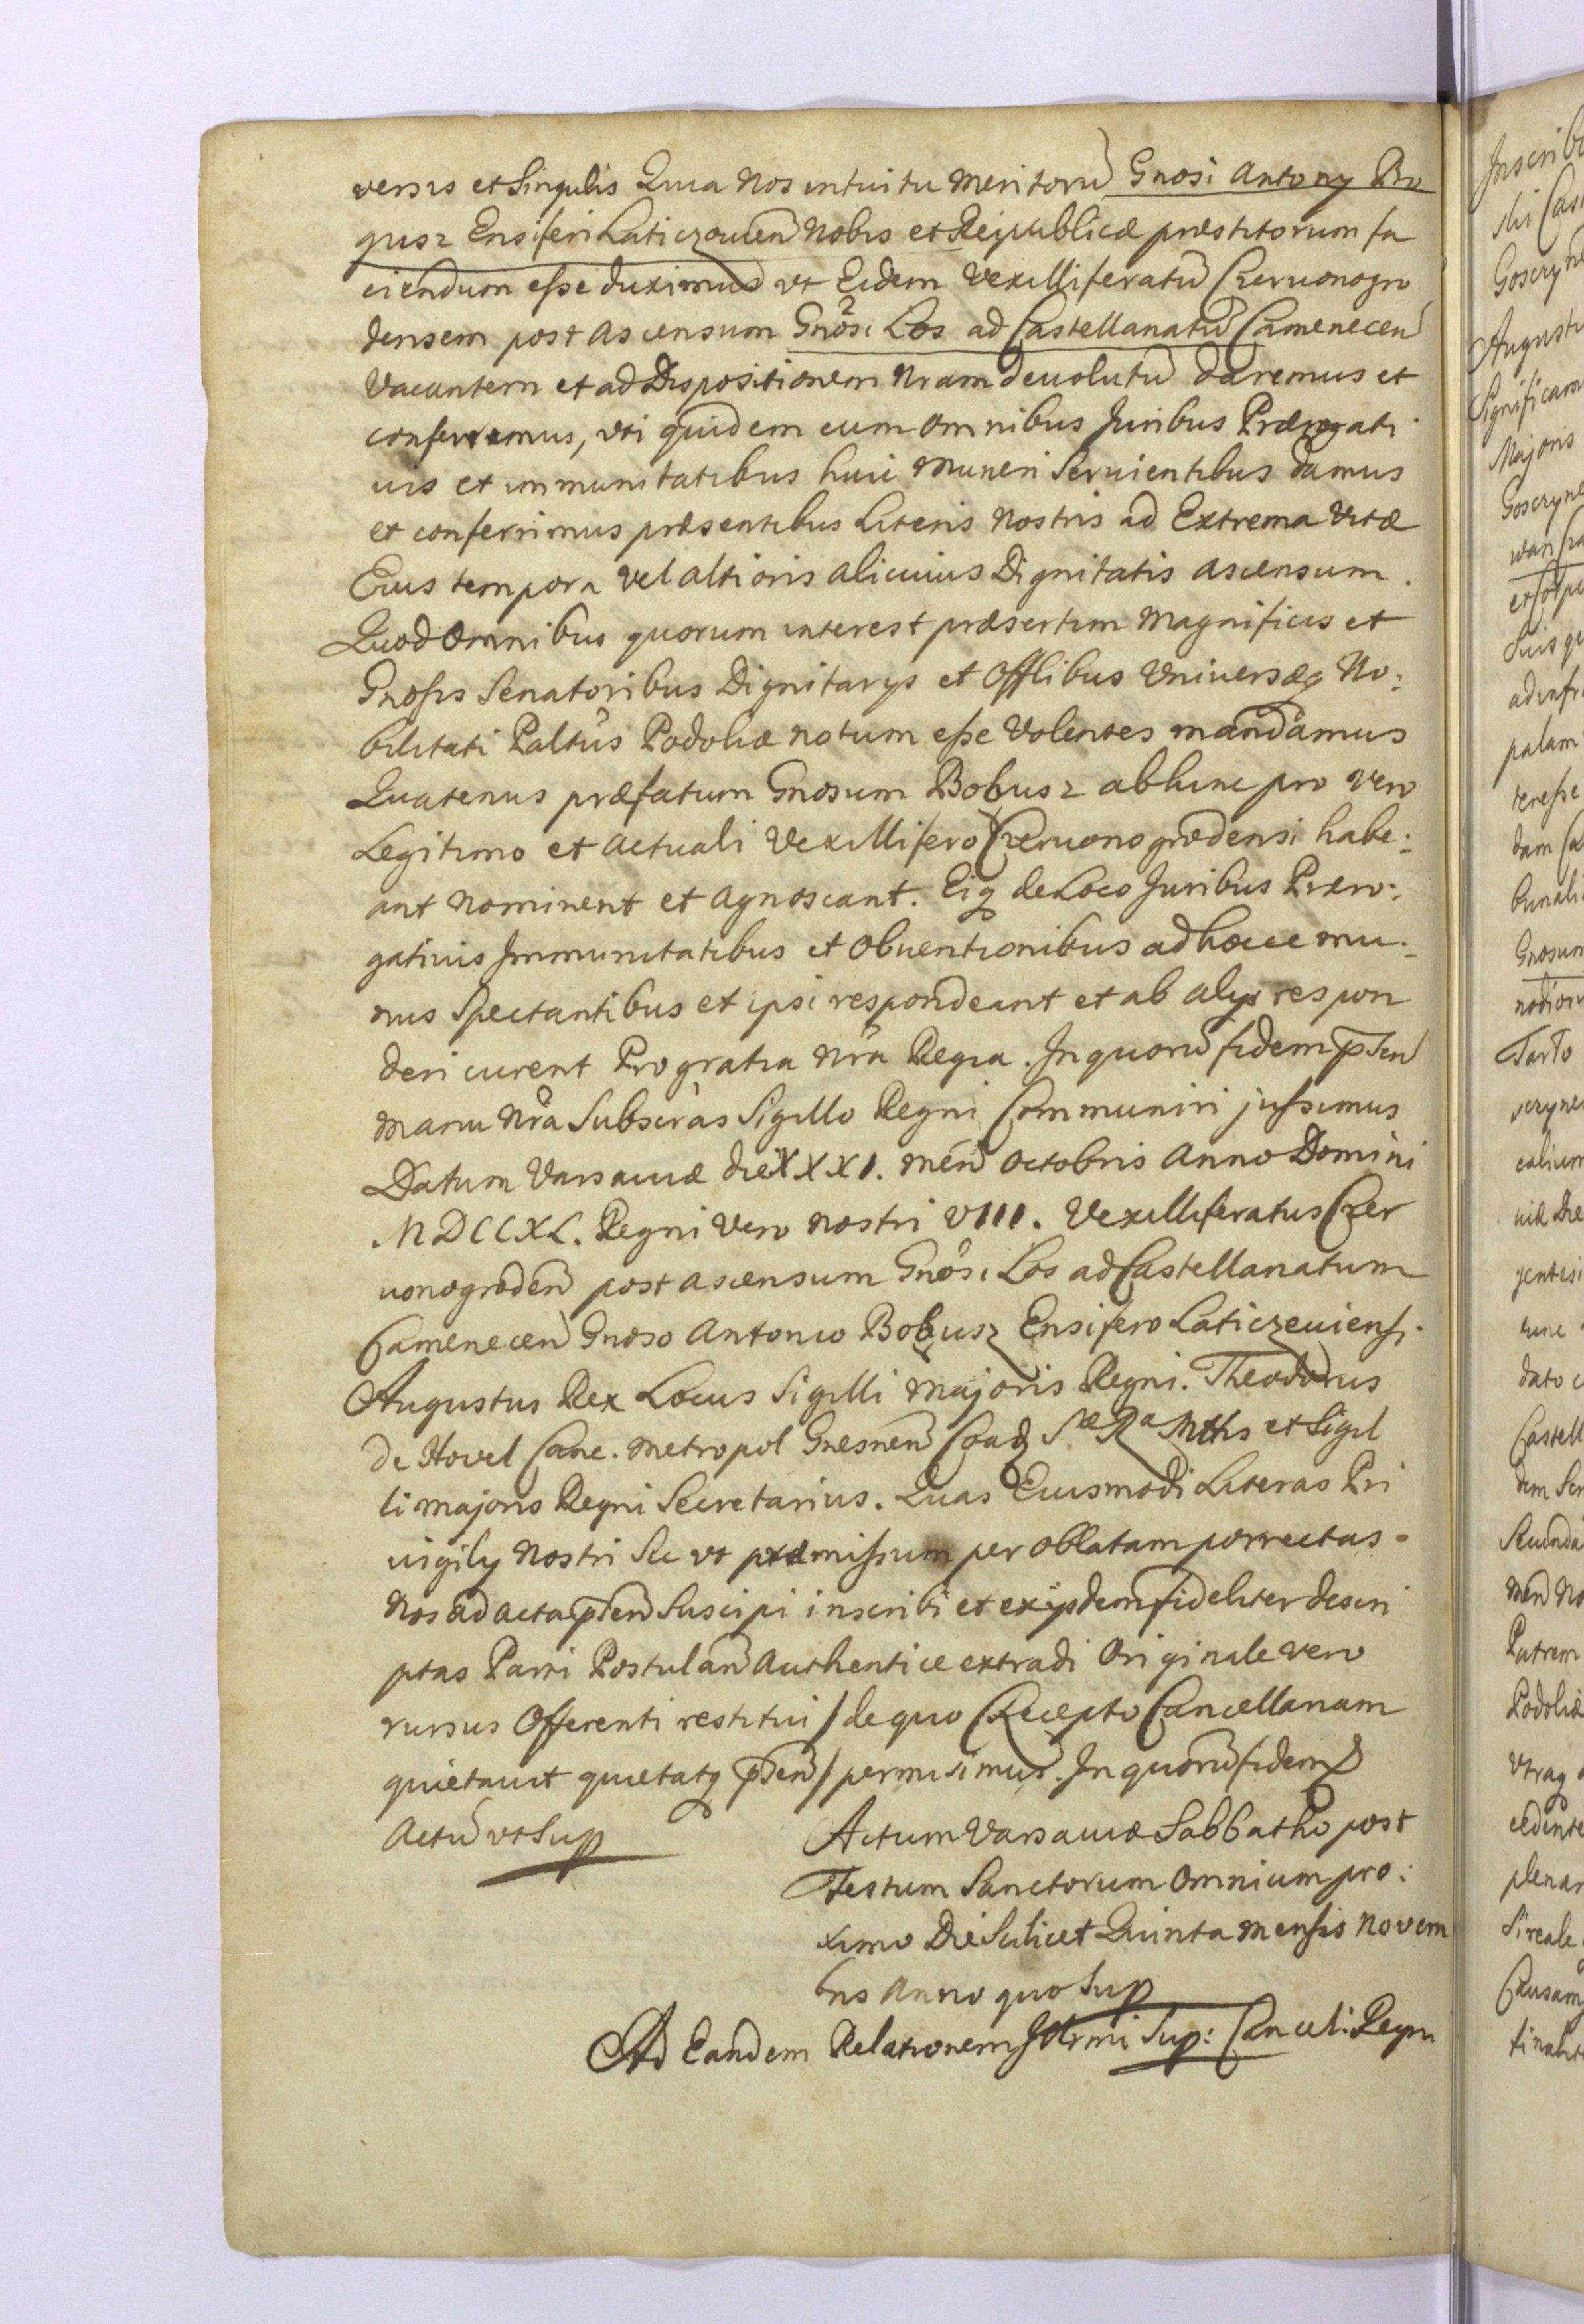 versis et Singulis Quia Nos intuitu Meritorũ Gnosi Antony Bo
gusz Ensiferi Laticzouien Nobis et Reipublicæ præstitorum fa
ciendum esse duximus vt Eidem Vexilliferatũ Czeruonogro
densem post Ascensum Gnõsi Łos ad Castellanatũ Camenecen
Vacantem et ad Dispositionem Nram deuolutũ daremus et
conferremus, vti quidem eum Omnibus Juribus Prærogati
uis et immunitatibus huic Muneri Seruientibus damus
et conferrimus præsentibus Literis Nostris ad Extrema Vitæ
Eius tempora vel altioris alicuius Dignitatis Ascensum.
Quod Omnibus quorum interest præsertim Magnificis et
Gnosis Senatoribus Dignitarys et Offlibus Vniversæq No:
bilitati Paltũs Podoliæ notum esse Volentes mandamus
Quatenus præfatum Gnosum Bobusz abhinc pro Vero
Legitimo et Actuali Vexillifero Czeruonogrodensi habe:
ant Nominent et Agnoscant. Eiq de Loco Juribus Præro:
gatiuis Immunitatibus et Obuentionibus ad hocce mu:
nus Spectantibus et ipsi respondeant et ab alys respon
deri curent Pro gratia Nrã Regia. In quorũ fidem pñten
Manu Nrã Subscràs Sigillo Regni Communiri jussimus
Datum Varsauiæ die XXXI. Men Octobris Anno Domini
MDCCXL. Regni Vero Nostri VIII. Vexilliferatus Czer
uonogroden post Ascensum Gnõsi Łos ad Castellanatum
Camenecen Gnoso Antonio Bobusz Ensifero Laticzeuiensi.
Augustus Rex Locus Sigilli Majoris Regni. Theodorus
de Hovel Canc. Metropol Gnesnen Coadj Sæ Ra Mttis et Sigil
li majoris Regni Secretarius. Quas Eiusmodi Literas Pri
uigily Nostri Sic vt præmissum per Oblatam porrectas
Nos ad Acta pñten Suscipi inscribi et exijsdem fideliter descri
ptas Parti Postulan Authentice extradi Originale vero
rursus Offerenti restitui / de quo Recepto Cancellariam
quietauit quietatq pñten / permisimus. In quorũ fidem
Actũ vt Sup
Actum Varsauiæ Sabbatho post
Festum Sanctorum Omnium pro:
ximo Die Scilicet Quinta Mensis Novem
bris Anno quo Sup
Ad Eandem Relationem Illrmi Sup: Cancel: Regni